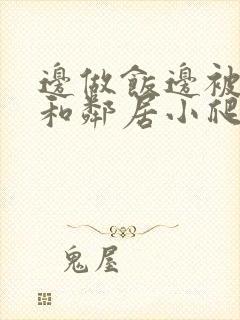 邊做飯邊被
和鄰居小爬
鬼屋